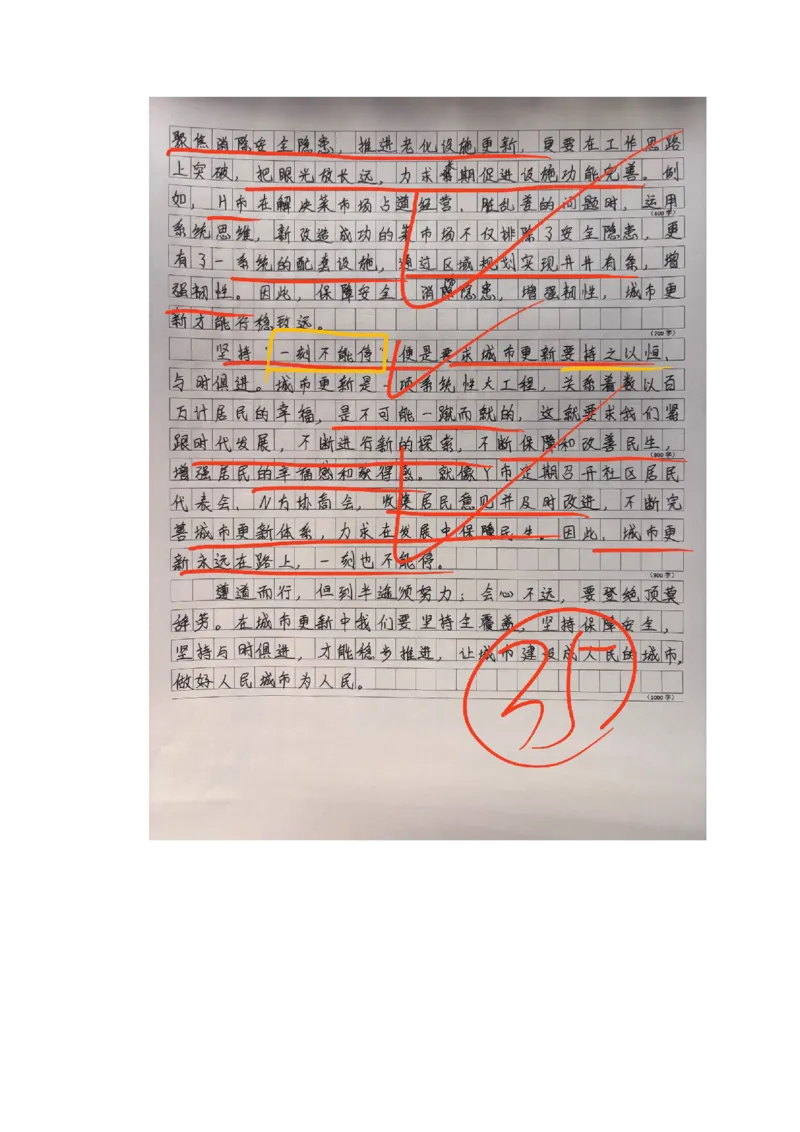 聚焦消除安全隐患，推进老化设施更新，更要在工作思路
上突破，把眼光放长远，力求长期促进设施功能完善。例
如，片市在解决菜市场占道经营、脏乱差的问题时，运用
(600字)
系统思维，新改造成功的菜市场不仅排除了安全隐患，更
有了一系统的配套设施，通过区域规划实现井井有条，增
强韧性。因此，保障安全，消除隐患，增强韧性，城市更
新才能行稳致远。
(700字)
坚持“一刻不能停”便是要求城市更新要持之以恒、
与时俱进。城市更新是一项系统性大工程，关系着数以百
万计居民的幸福，是不可能一蹴而就的，这就要求我们紧
跟时代发展，不断进行新的探索，不断保障和改善民生，
(800字)
增强居民的幸福感和获得感。就像Y市定期召开社区居民
代表会、N方协商会，收集居民意见并及时改进，不断完
善城市更新体系，力求在发展中保障民生。因此，城市更
新永远在路上，一刻也不能停。
(900字)
道而行，但到半途须努力；会心不远，要登绝顶莫
辞劳。在城市更新中我们要坚持全覆盖，坚持保障安全，
坚持与时俱进，才能稳步推进，让城市建设成人民的城市，
做好人民城市为人民。
(1000字)
35